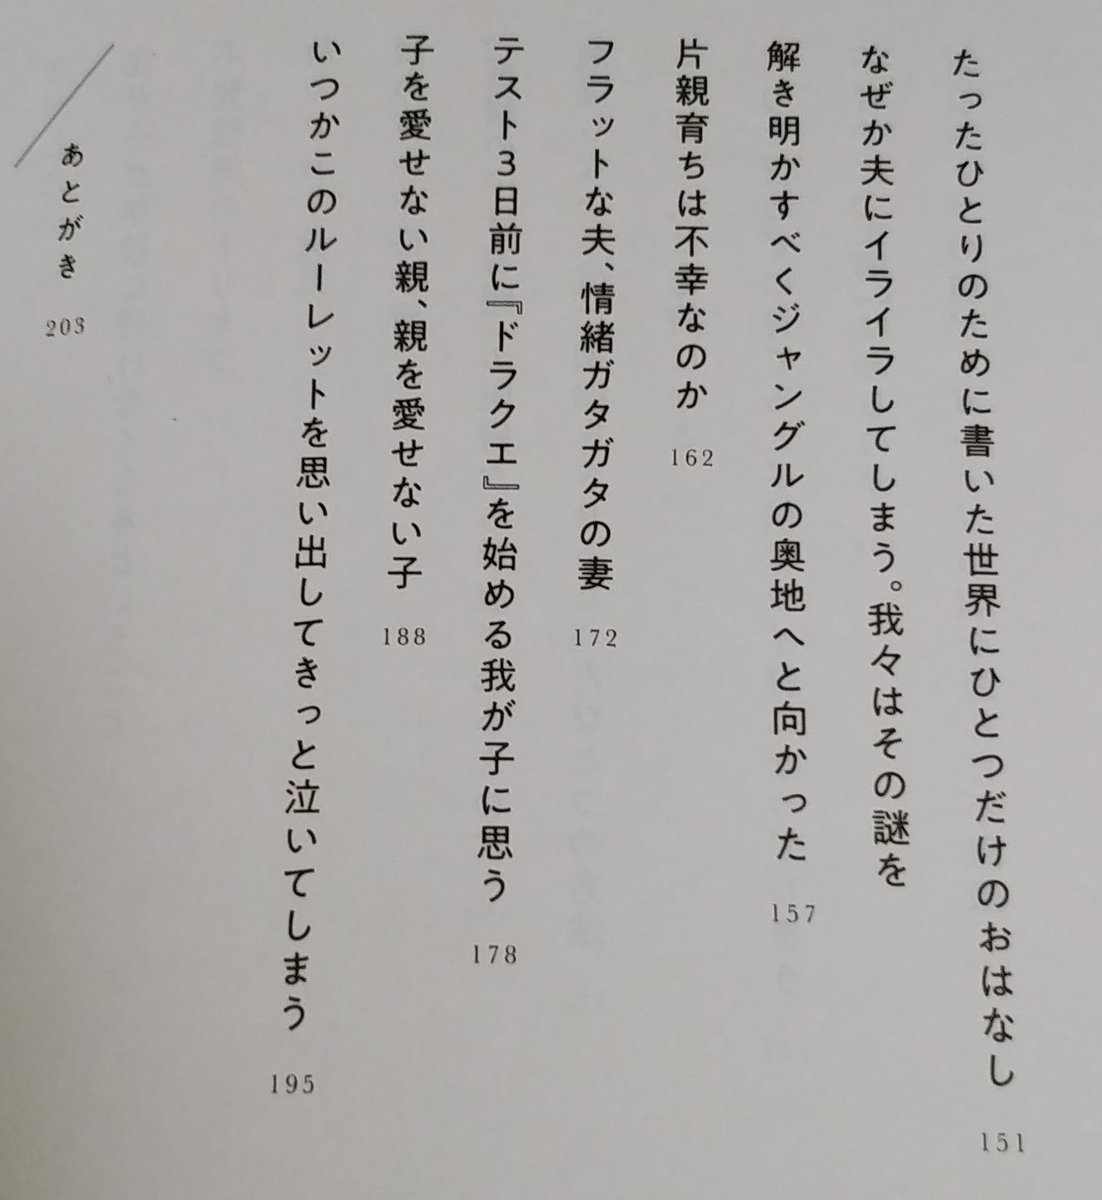 たったひとりのために書いた世界にひとつだけのおはなし 151
なぜか夫にイライラしてしまう。我々はその謎を
解き明かすべくジャングルの奥地へと向かった 157
片親育ちは不幸なのか 162
フラットな夫、情緒ガタガタの妻 172
テスト3日前に『ドラクエ』を始める我が子に思う 178
子を愛せない親、親を愛せない子 188
いつかこのルーレットを思い出してきっと泣いてしまう 195
あとがき 203